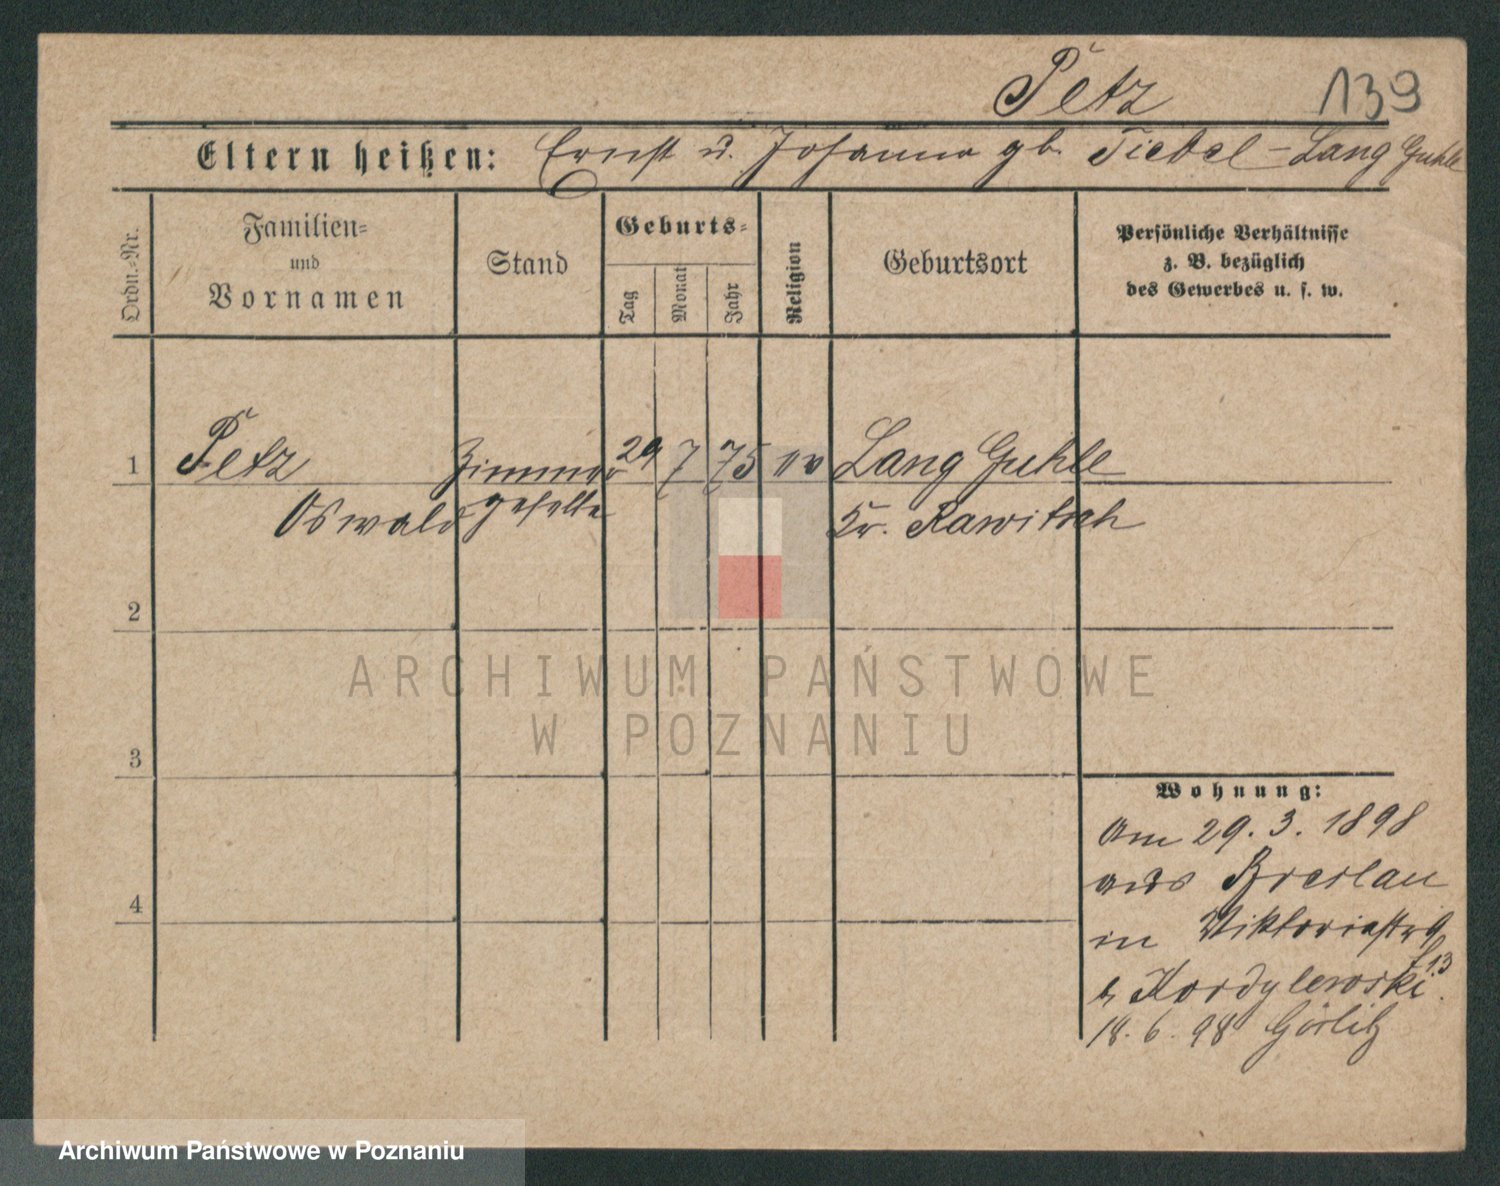 Petz 139
Eltern heißen: Ernst u. Johanna gb. Tiebel - Lang Guhle
Ordn.-Nr.
Familien-
und
Vornamen
Stand
Geburts-
Tag
Monat
Jahr
Religion
Geburtsort
Persönliche Verhältnisse
z. B. bezüglich
des Gewerbes u. s. w.
1 Petz Zimmer 29 7 75 ev Lang Guhle
Oswald geselle Kr. Rawitsch
2
ARCHIWUM PAŃSTWOWE
W POZNANIU
3
Wohnung:
Am 29. 3. 1898
aus Breslau
4
in Viktoriastr 9
b Kordylewski.
18. 6. 98 Görlitz
Archiwum Państwowe w Poznaniu